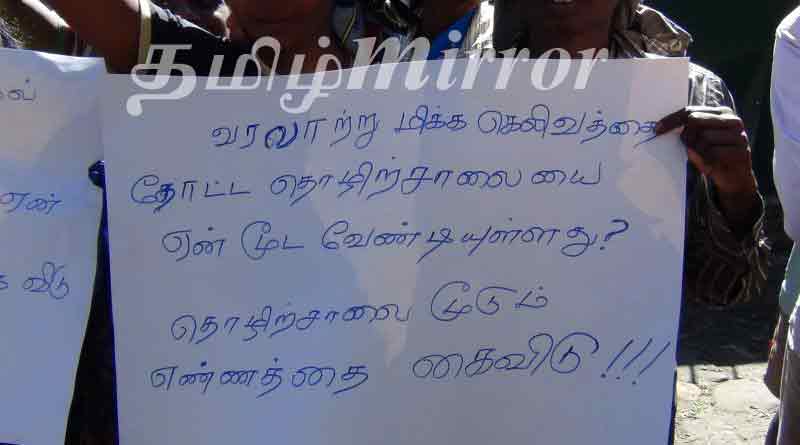 தமிழ்mirror
வரலாற்று மிக்க கெலிவத்தை
தோட்ட தொழிற்சாலையை
ஏன் மூட வேண்டியுள்ளது?
தொழிற்சாலை மூடும்
எண்ணத்தை கைவிடு!!!
ஏன்
வீடு